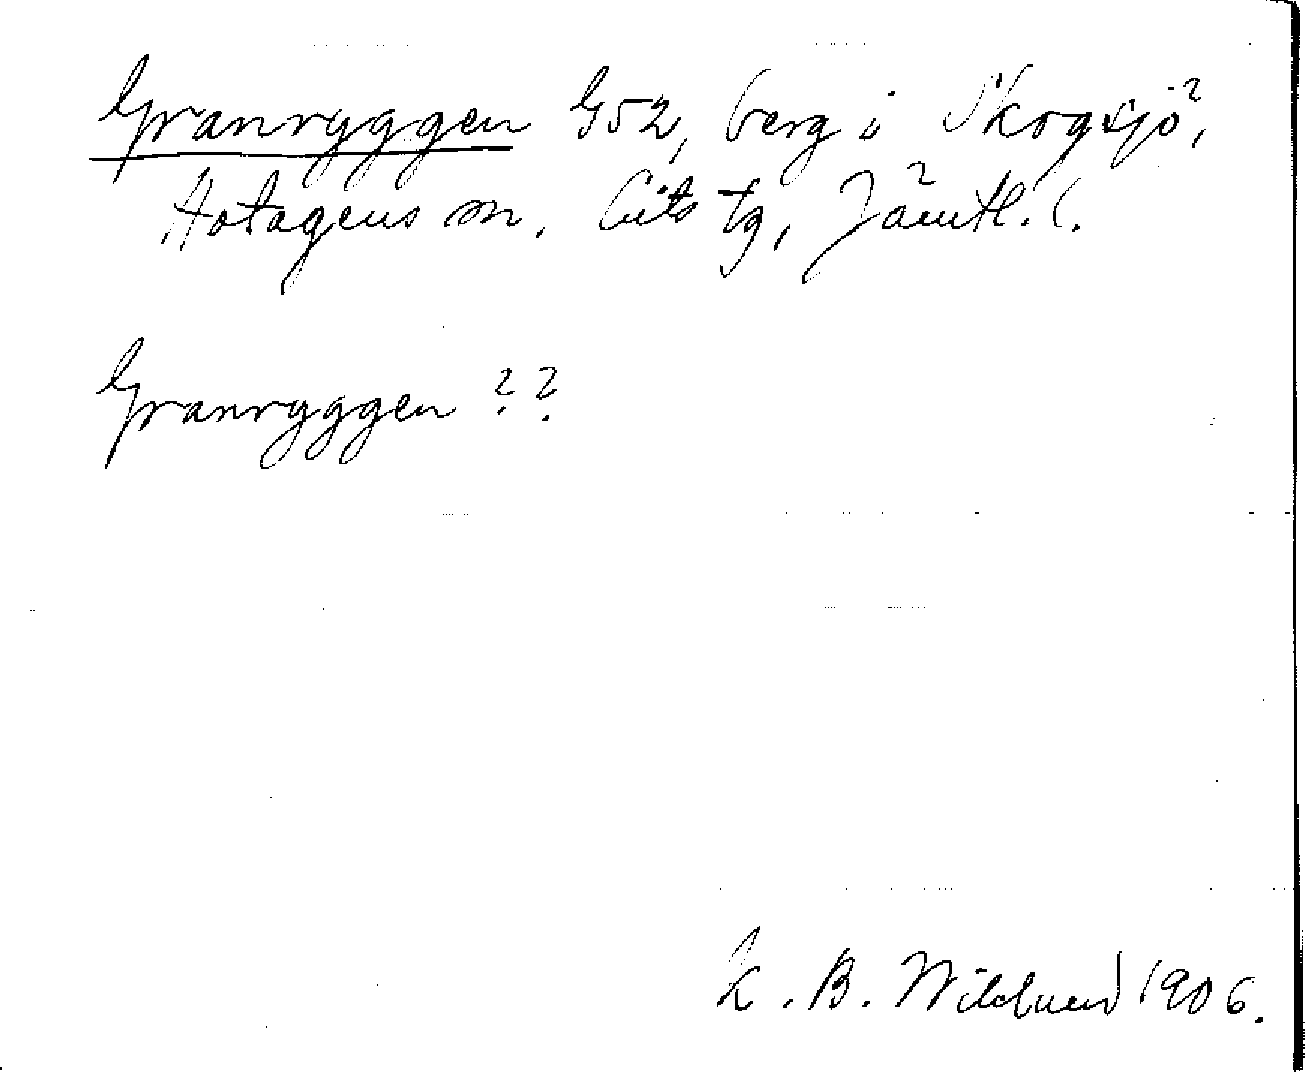 Granryggen G52, berg i Skogsjö?,
Hotagens sn. Lits tg, Jämtl. l.
Granryggen ? ?
K. B. Wiklund 1906.